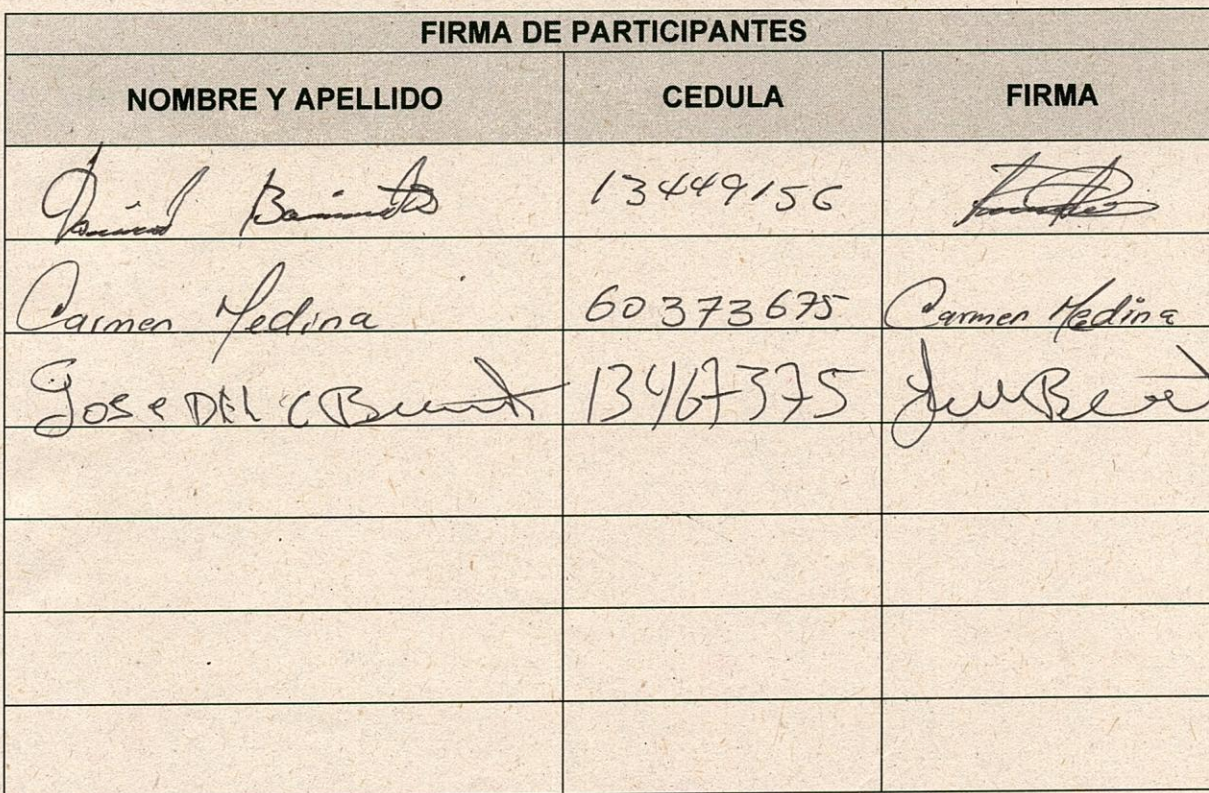 FIRMA DE PARTICIPANTES
NOMBRE Y APELLIDO CEDULA FIRMA
13449156
Carmen Medina 60373675 Carmen Medina
Jose DEL C 13467375